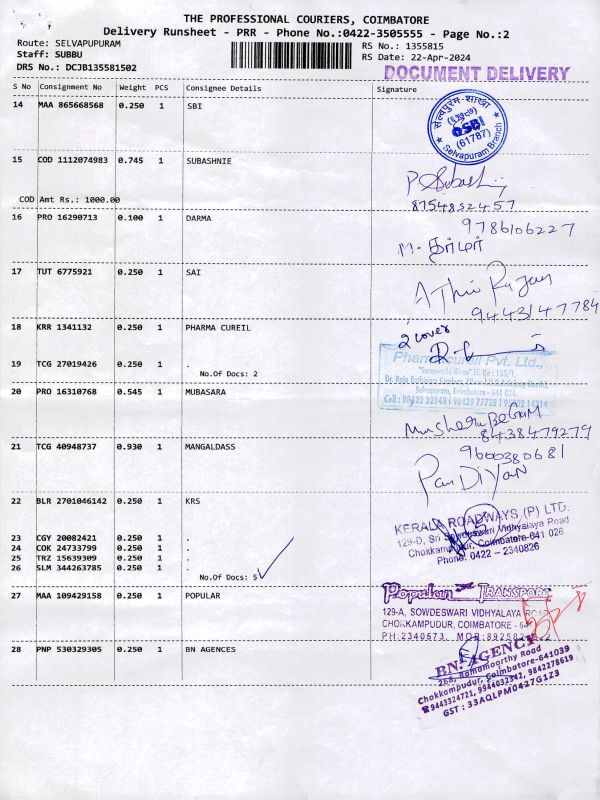 THE PROFESSIONAL COURIERS, COIMBATORE
Delivery Runsheet - PRR - Phone No.:0422-3505555 - Page No.:2
Route: SELVAPUPURAM
RS No.: 1355815
Staff: SUBBU
RS Date: 22-Apr-2024
DRS No.: DCJB135581502
DOCUMENT DELIVERY
S No Consignment No Weight PCS Consignee Details Signature
14 MAA 865668568 0.250 1 SBI
SBI
(61787)
Selvapuram Branch
15 COD 1112074983 0.745 1 SUBASHNIE
COD Amt Rs.: 1000.00
8754852457
16 PRO 16290713 0.100 1 DARMA
9786106227
M. தர்மர்
17 TUT 6775921 0.250 1 SAI
9443147784
18 KRR 1341132 0.250 1 PHARMA CUREIL
2 cover
19 TCG 27019426 0.250 1 .
No.Of Docs: 2
Pharma Cureil Pvt. Ltd.,
20 PRO 16310768 0.545 1 MUBASARA
Coimbatore - 641 026.
Cell : 98422 32143 | 98439 77728
8438479279
21 TCG 40948737 0.930 1 MANGALDASS
9600380681
PanDiYan
22 BLR 2701046142 0.250 1 KRS
KERALA ROADWAYS (P) LTD.
129-D, Sri Sowdeswari Vidhyalaya Road
Chokkampudur, Coimbatore-641 026
Phone: 0422 - 2340826
23 CGY 20082421 0.250 1 .
24 COK 24733799 0.250 1 .
25 TRZ 15639309 0.250 1 .
26 SLM 344263785 0.250 1 .
No.Of Docs: 5
27 MAA 109429158 0.250 1 POPULAR
Popular TRANSPORT
129-A, SOWDESWARI VIDHYALAYA ROAD
CHOKKAMPUDUR, COIMBATORE - 641
PH:2340573.
28 PNP 530329305 0.250 1 BN AGENCES
BN. AGENCY
268, Ramamoorthy Road
Chokkampudur, Coimbatore-641039
9443324721, 9944032342, 9842278619
GST : 33AQLPM0427G1Z3